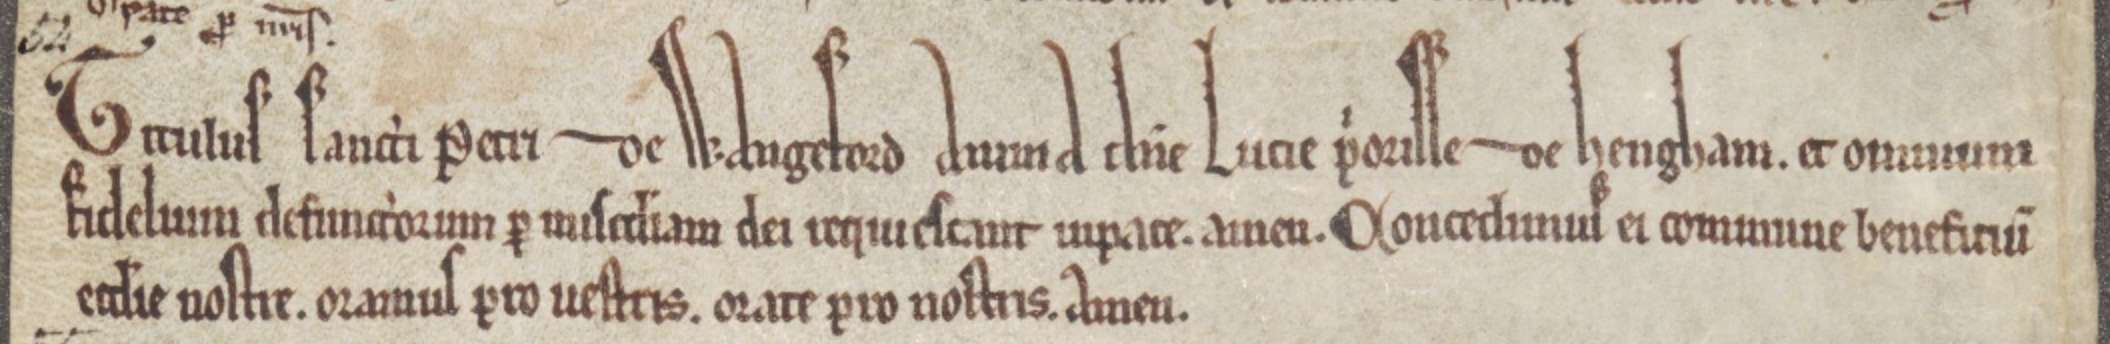 pace ꝑ nr̄is.
52
Titulus sancti Petri de Wangeford Anima d͞ne Lucie p'orisse de hengham. et omnium
fidelium defunctorum ꝑ mis͞cdiam dei requiescant inpace. amen. Concedimus ei commune beneficiū
eccl̄ie nostre. oramus pro uestris. orate pro nostris. Amen.